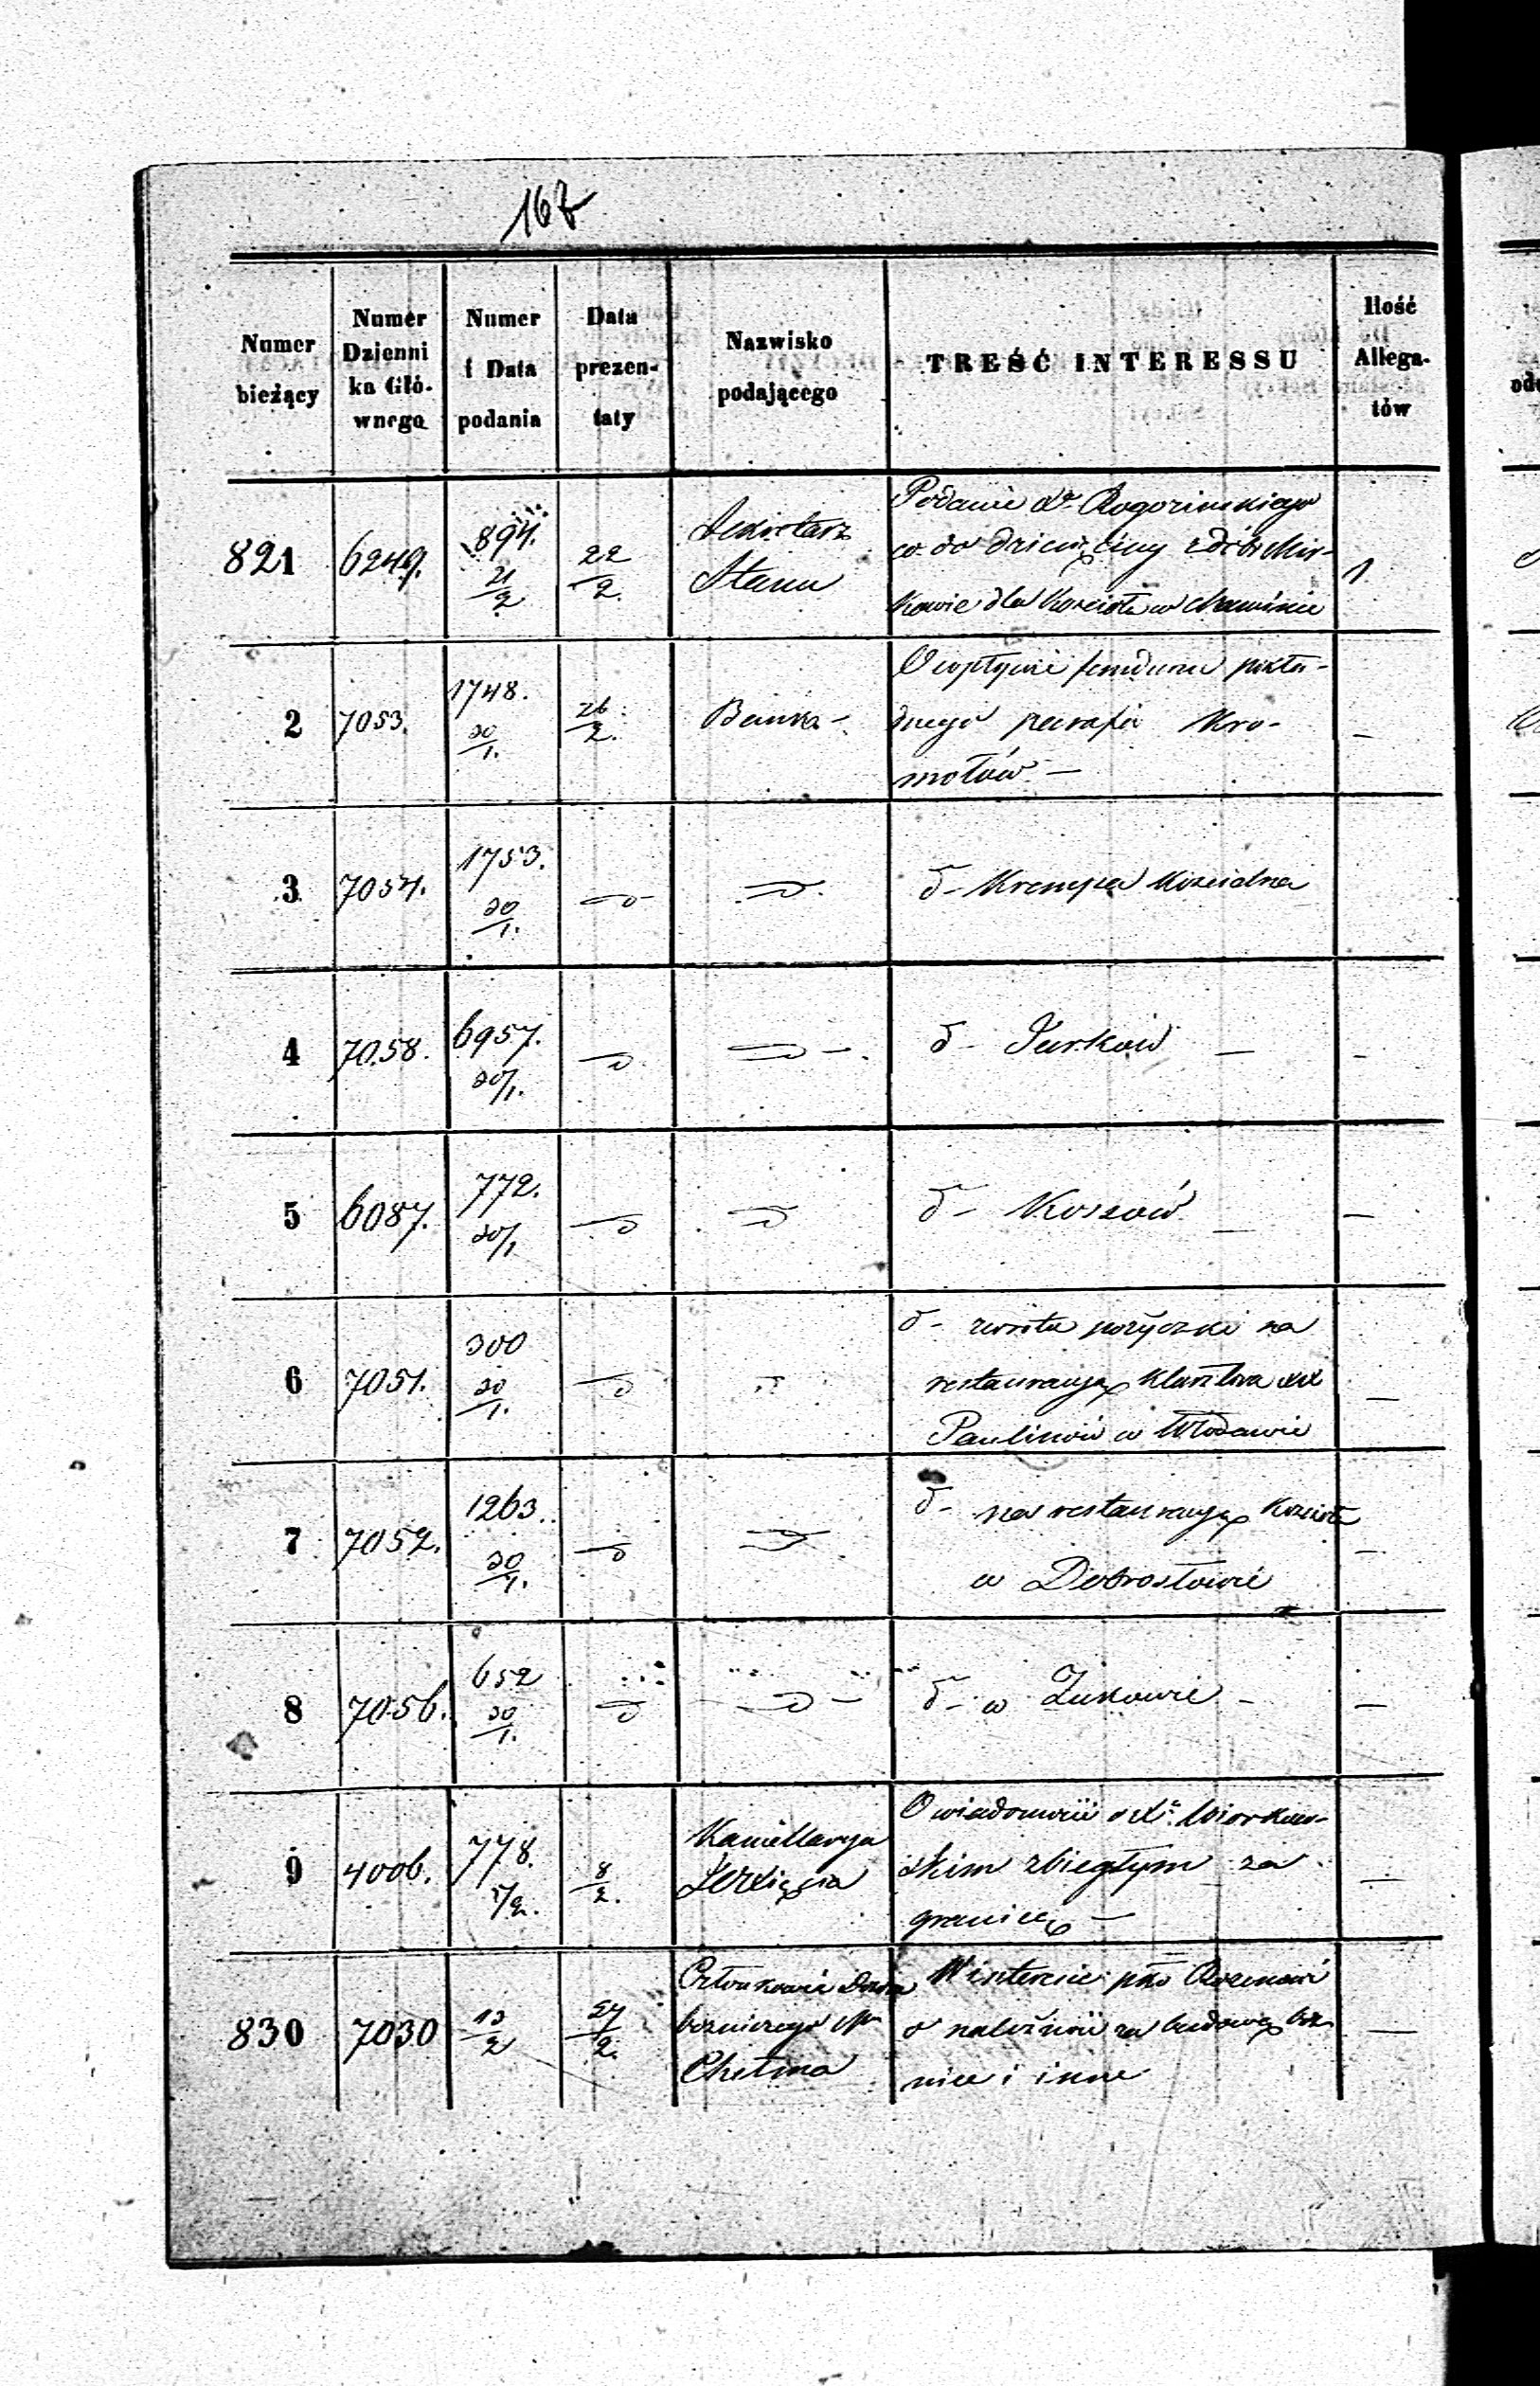 167
Numer bieżący
Numer Dzienni ka Głó- wnego
Numer i Data podania
Data prezen- taty
Nazwisko podającego
TREŚĆ INTERESSU
Ilość Allega- tów
821 6249. 894. 21/2 22/2. Sekretarz Stanu
Podanie Xa Rogozinskiego
co do dziesięciny z dóbr Mir-
kowie dla Kościoła w 1
2 7053. 1748. 30/1. 26/2. Banku -
O wpływie funduszu pokła-
dnego parafii Kro-
mołów —
3 7054. 1753. 30/1.
d- Krempa Kościelna
4 7058. 6957. 30/1.
d- Turkow — -
5 6087. 772. 30/1
d- Koszów — —
6 7051. 300 30/1.
d- zwrotu pożyczki na
restauracyą Klasztoru XX
Paulinów w Włodawie —
7 7052. 1263. 30/1.
d- na restauracyą Kościoła
w Dobrosłowie —
8 7056. 652 30/1.
d- w Żukowie - —
9 4006. 778. 5/2. 8/2. Kancellarya JO Xięcia
O wiadomości o Xu
skim zbiegłym za
granicę — —
830 7030 13/2 27/2. Członkowie Dozoru
bożniczego Ma
Chełma
W interesie pko Rozenowi
o należność za budowę boż
nice i inne —